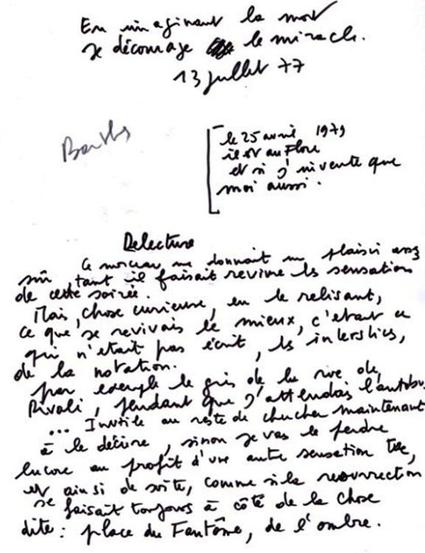 En imaginant la mort
je décourage le miracle.
13 juillet 77
Barthes
le 25 avril 1979
il est au Flore
et si j'invente que
moi aussi.
Delecture
Ce morceau me donnait un plaisir assez
sûr, tant il faisait revivre les sensations
de cette soirée.
Mais, chose curieuse, en le relisant,
ce que je revivais le mieux, c'était ce
qui n'était pas écrit, les interstices,
de la notation.
par exemple le gris de la rue de
Rivoli, pendant que j'attendais l'autobus
... Inutile au reste de chercher maintenant
à le décrire, sinon je vais le perdre
encore au profit d'une autre sensation tue,
et ainsi de suite, comme si la résurrection
se faisait toujours à côté de la chose
dite : place du Fantôme, de l'ombre.